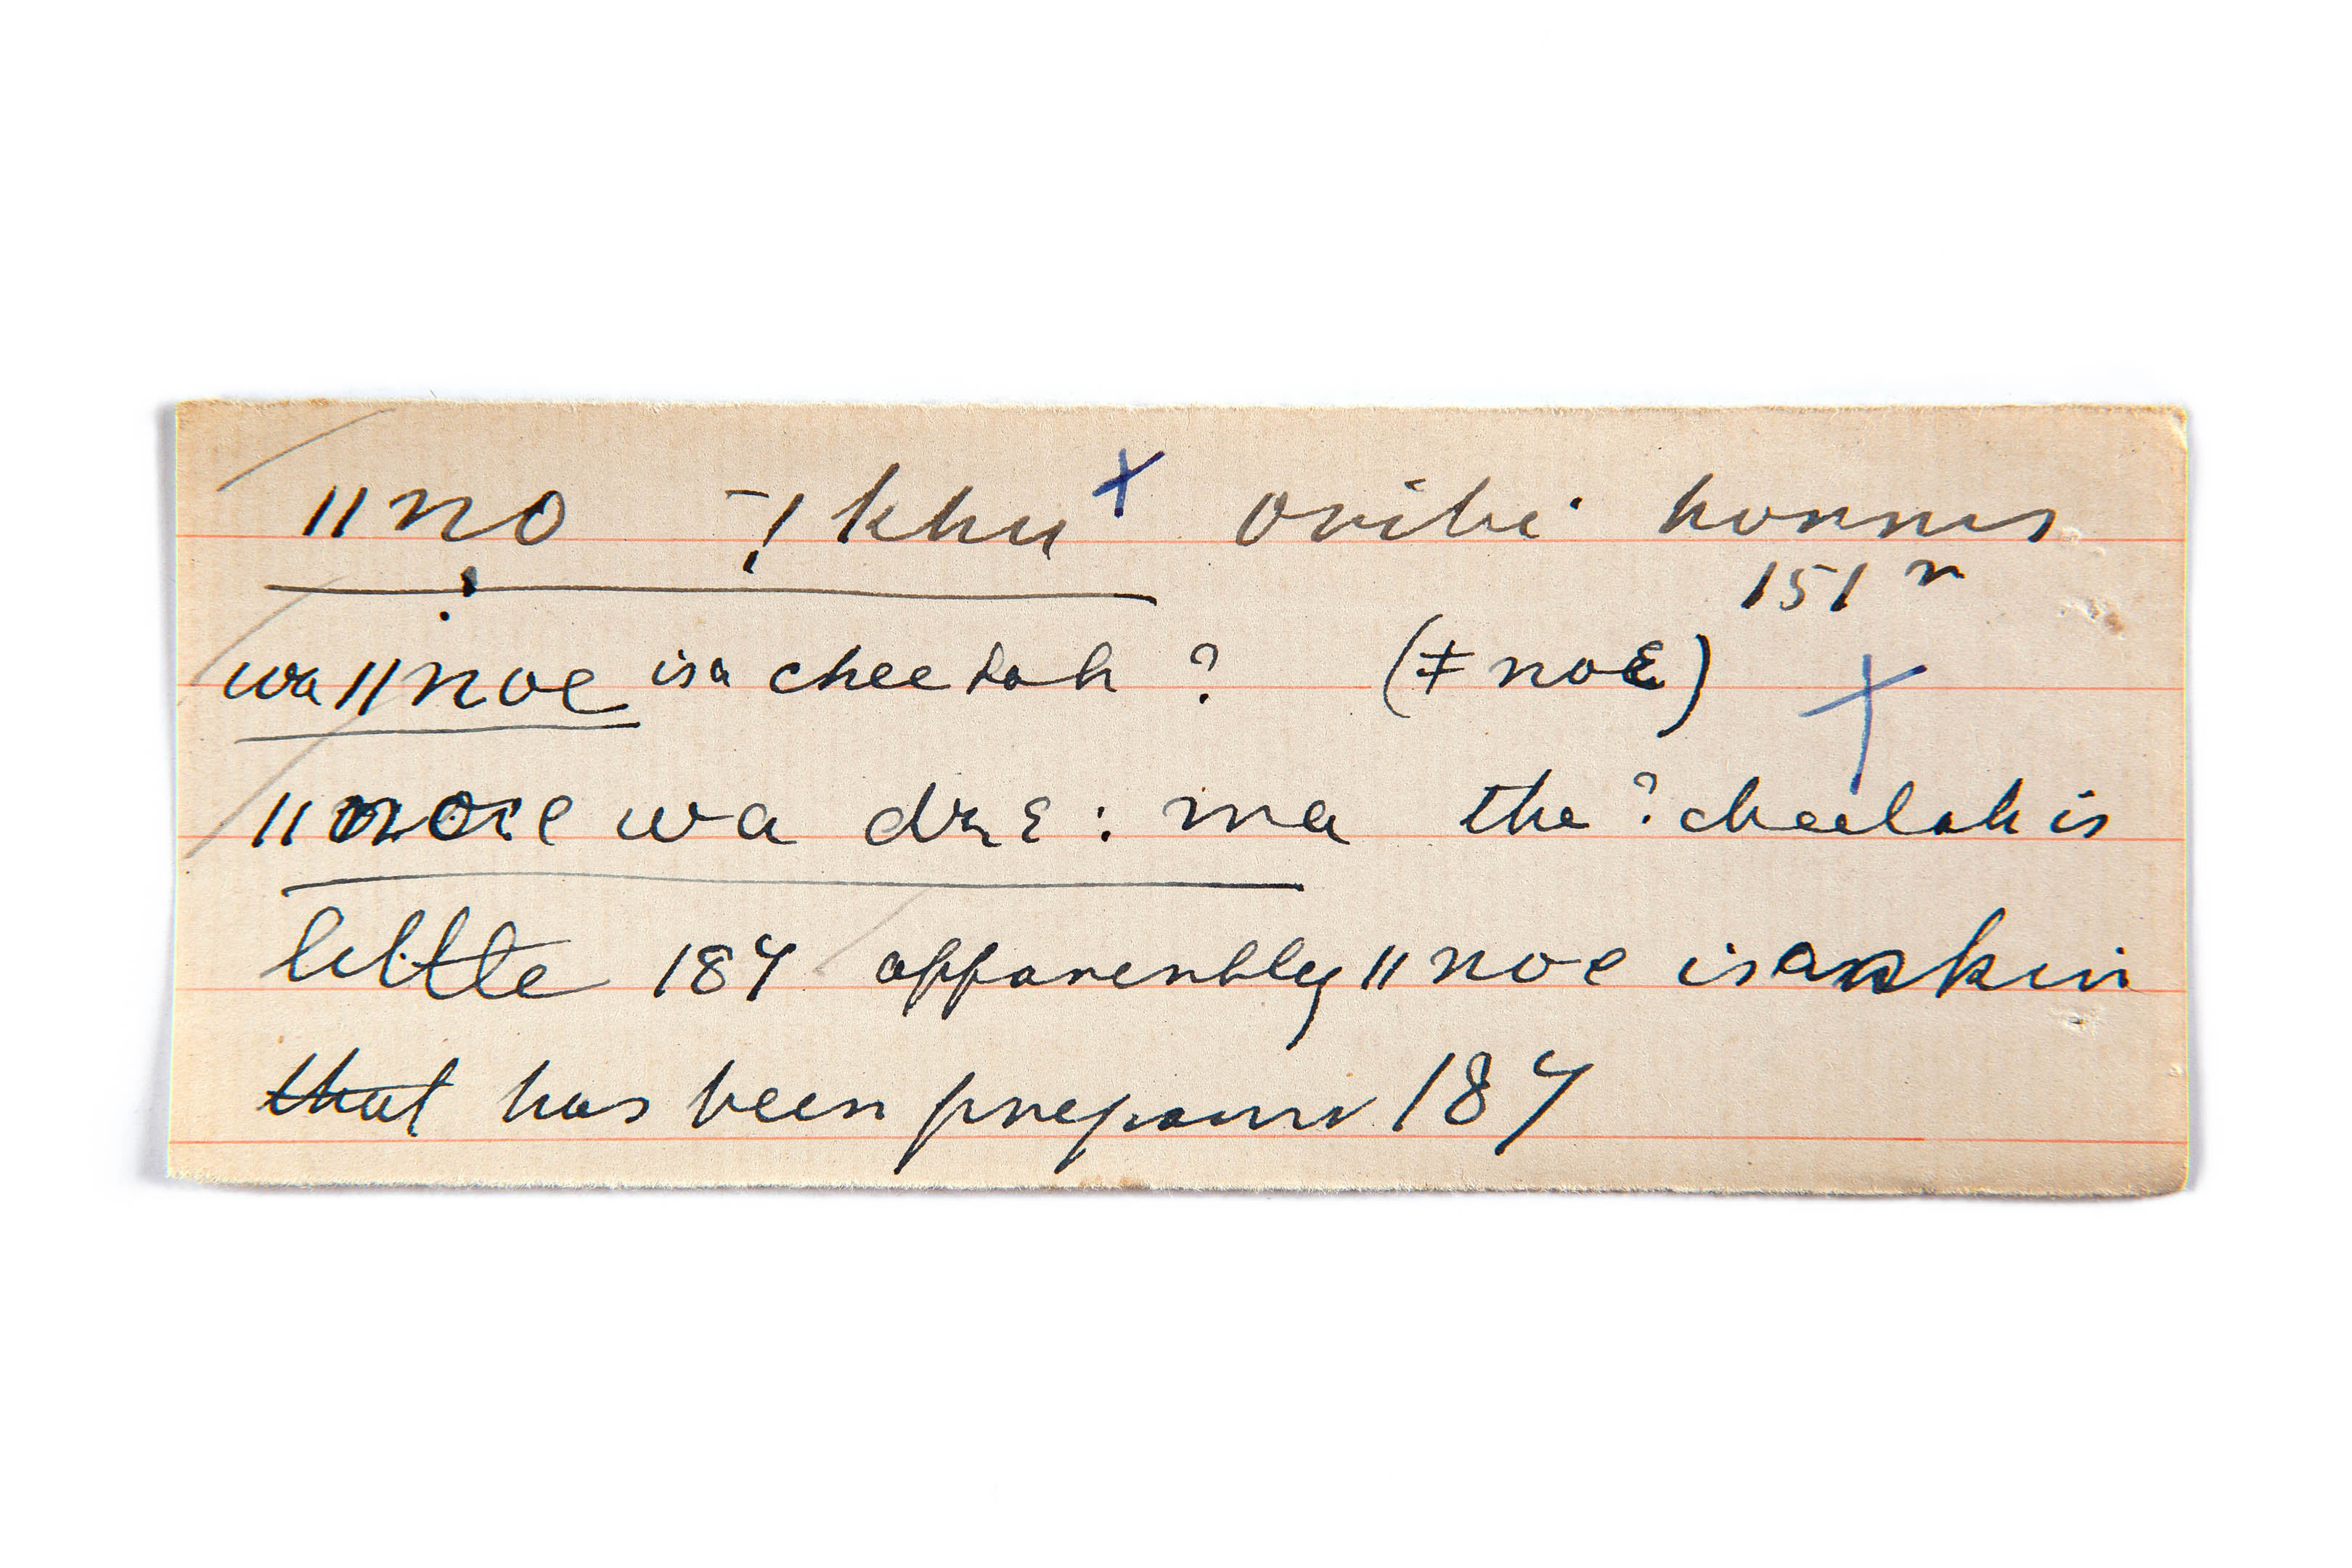 ǁno ˉ!khu x oribi horns
151 n
wa ǁnoe is a cheetah ? (ǂnoɛ)
ǁnoie wa dzɛ: ma the ? cheetah is
little 187 apparently ǁnoe is a skin
that has been prepared 187